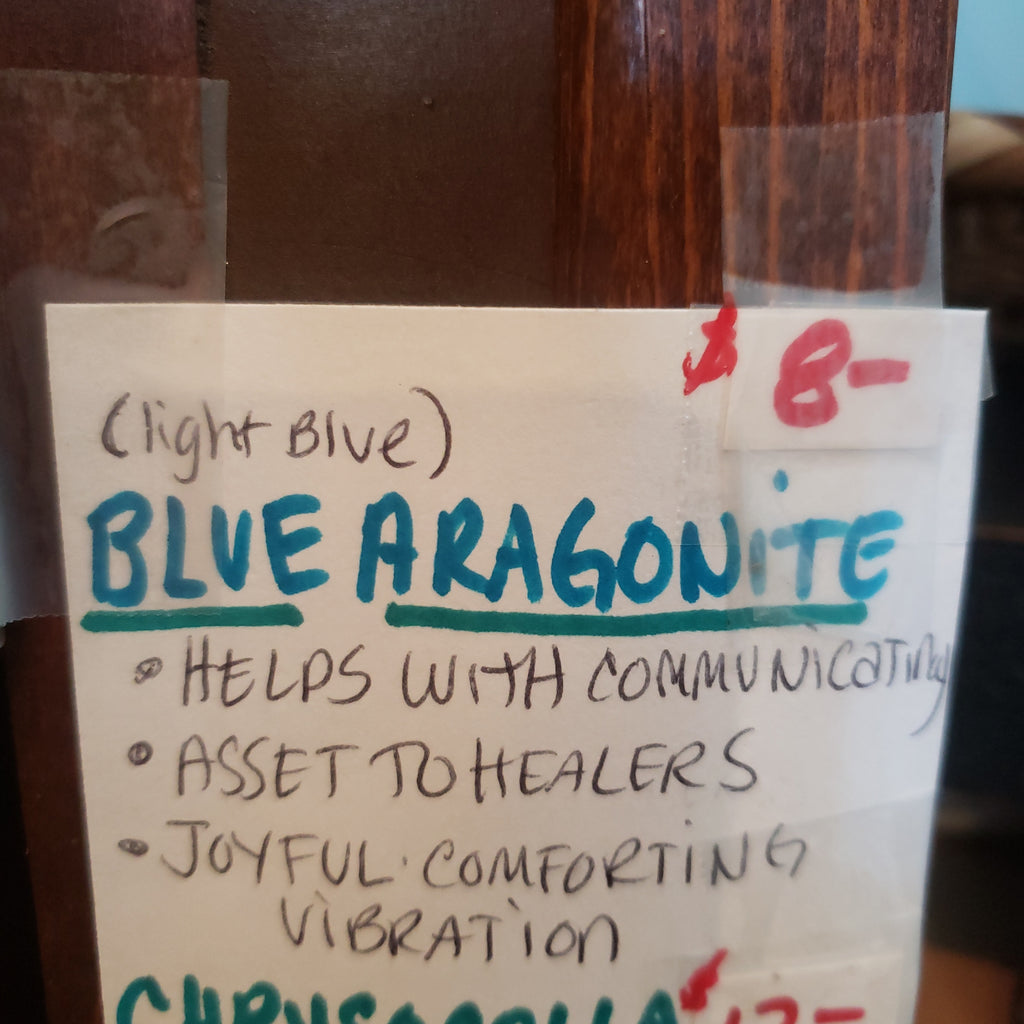 $ 8-
(light Blue)
BLUE ARAGONiTE
• HELPS WiTH COMMUNiCATiNg
• ASSET TO HEALERS
• JOYFUL · COMFORTiNG
ViBRATiON
CHRYSOCOLLA $ 12-